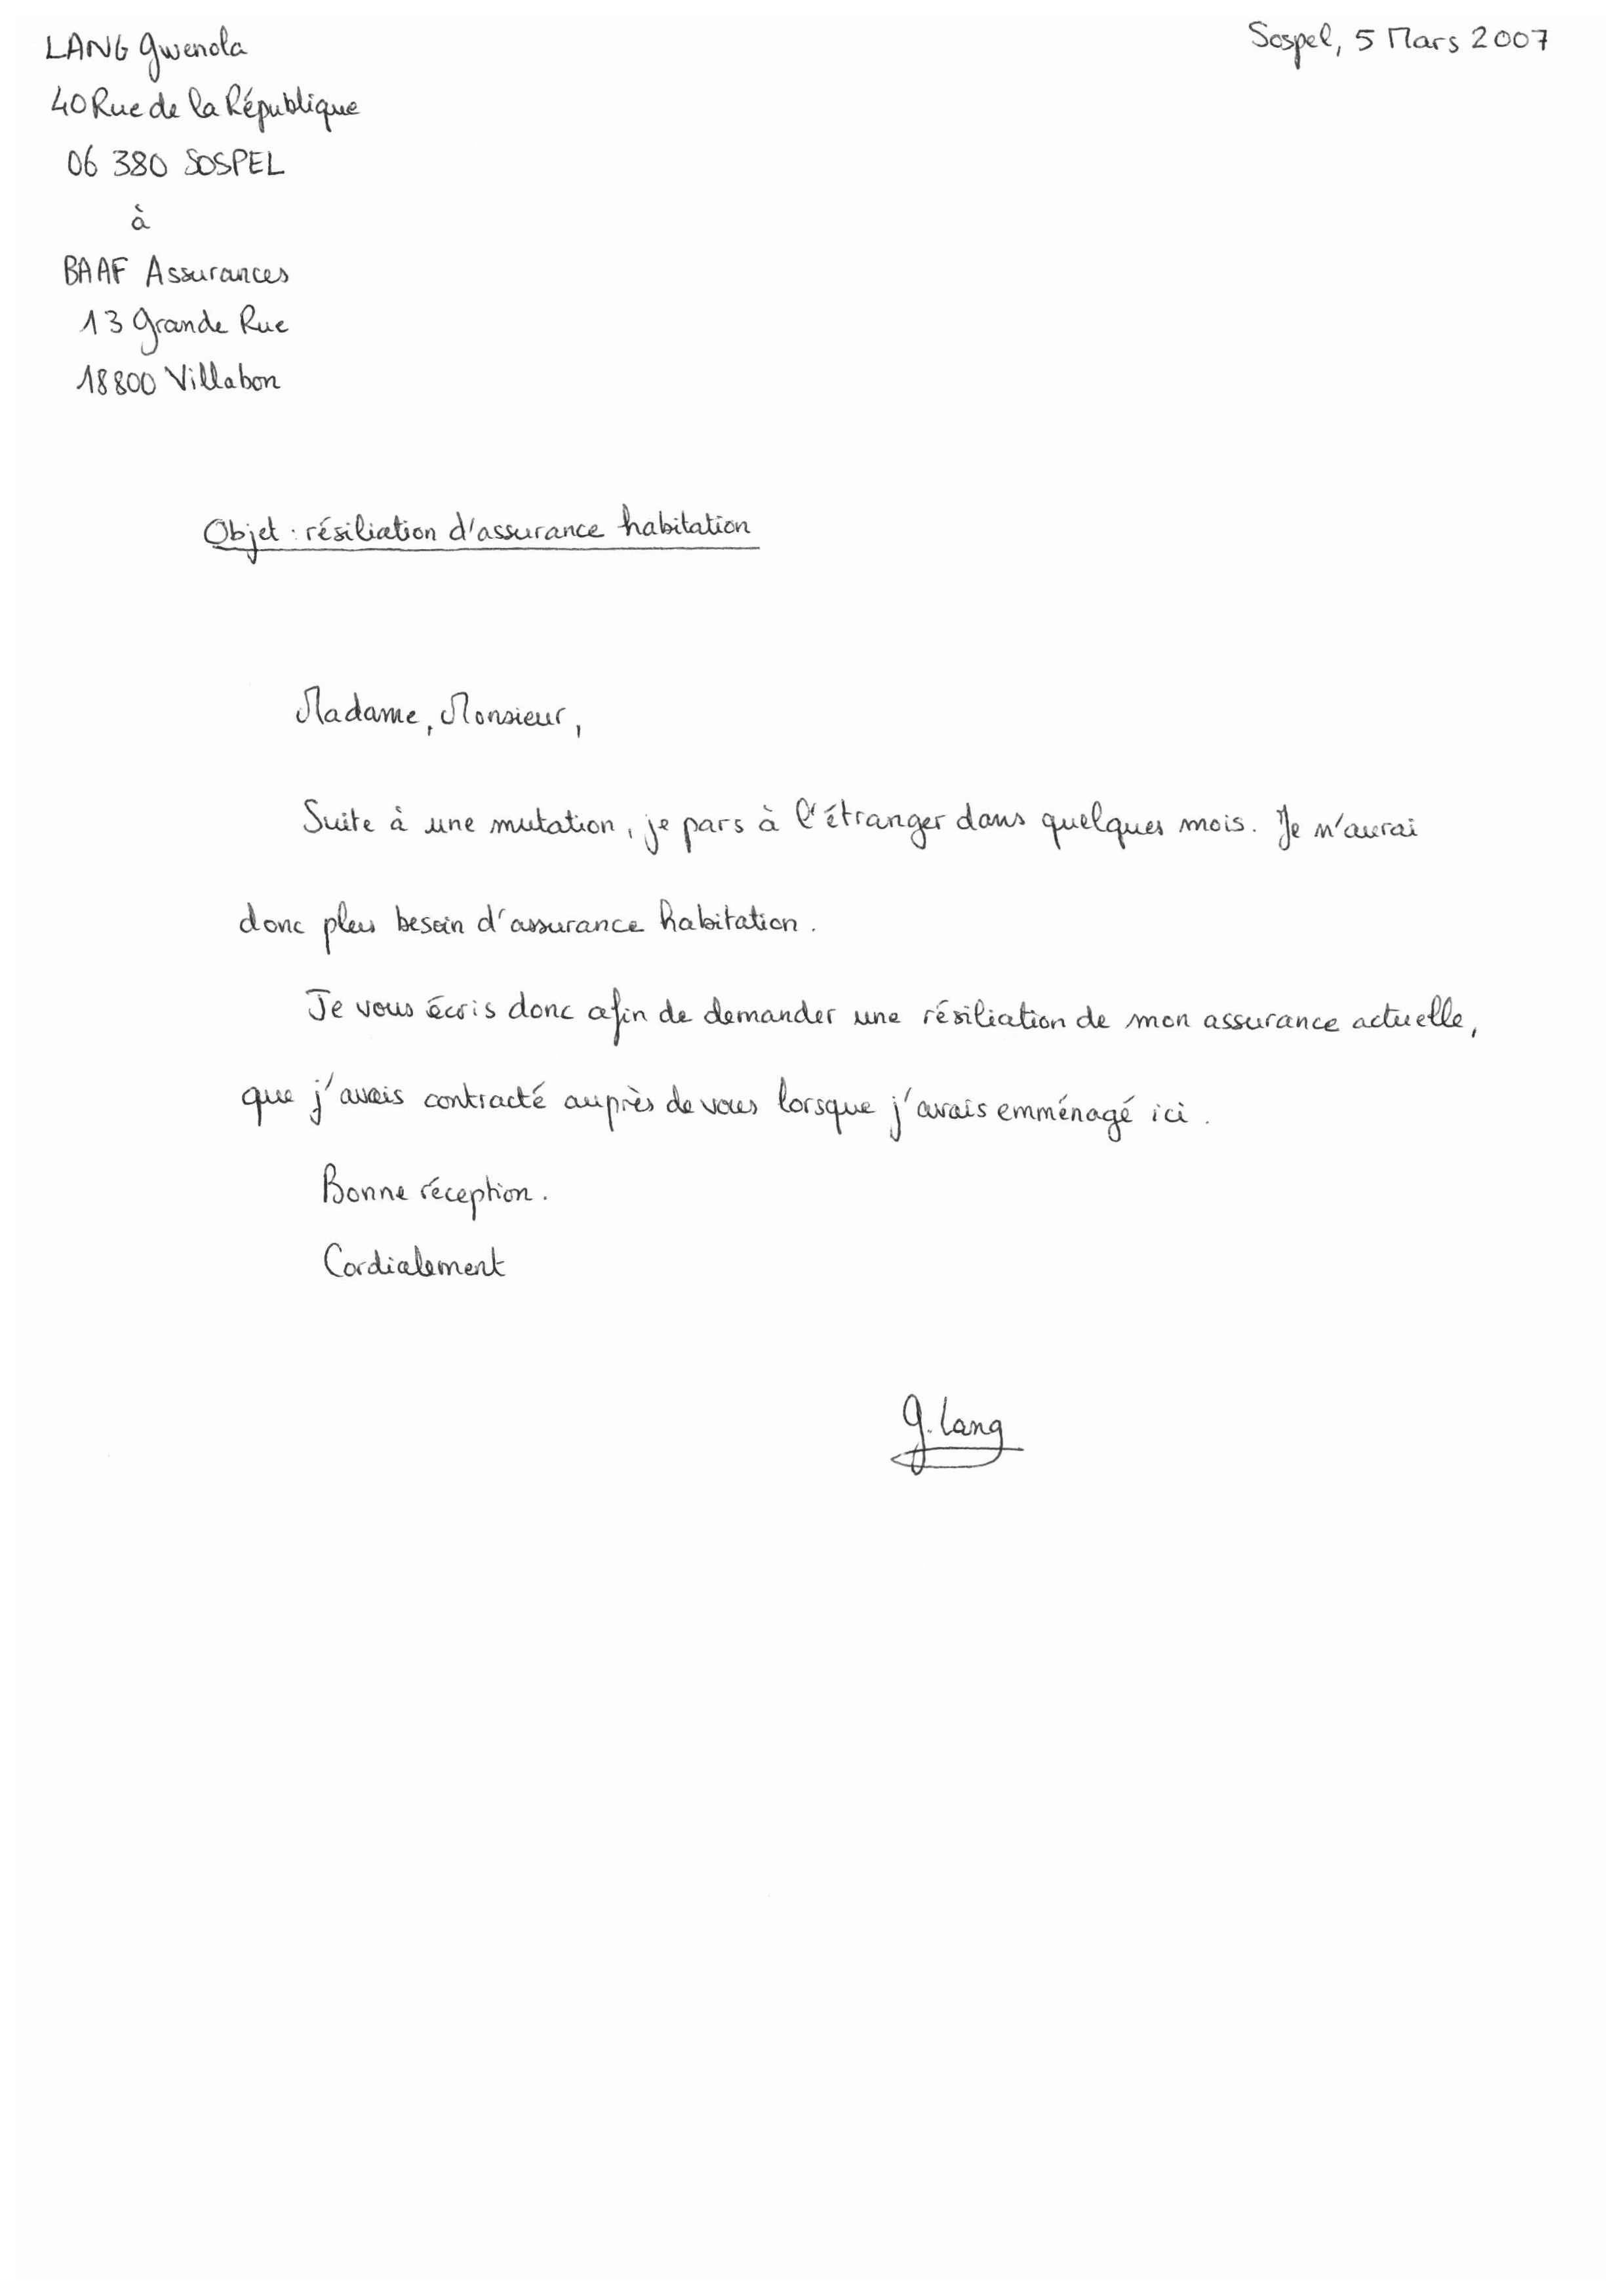 LANG Gwenola
40 Rue de la République
06 380 SOSPEL
à
BAAF Assurances
13 Grande Rue
18800 Villabon
Sospel, 5 Mars 2007
Objet : résiliation d'assurance habitation
Madame, Monsieur,
Suite à une mutation, je pars à l'étranger dans quelques mois. Je n'aurai
donc plus besoin d'assurance habitation.
Je vous écris donc afin de demander une résiliation de mon assurance actuelle,
que j'avais contracté auprès de vous lorsque j'avais emménagé ici.
Bonne réception.
Cordialement
G. Lang